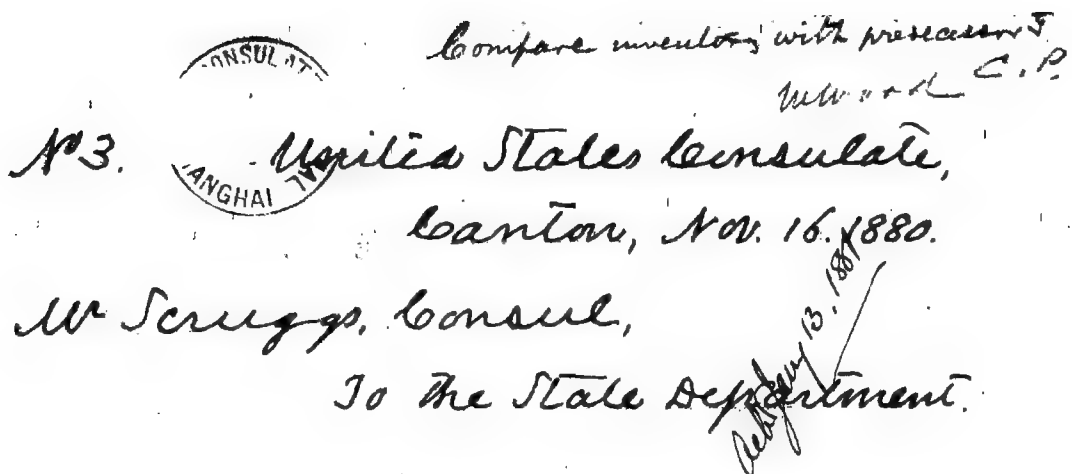 Compare inventory with predecessor's
C.P.
CONSULAT
ANGHAI
No 3. United States Consulate,
Canton, Nov. 16. 1880.
Mr Scruggs, Consul,
To the State Department.
Jany 13. 1881